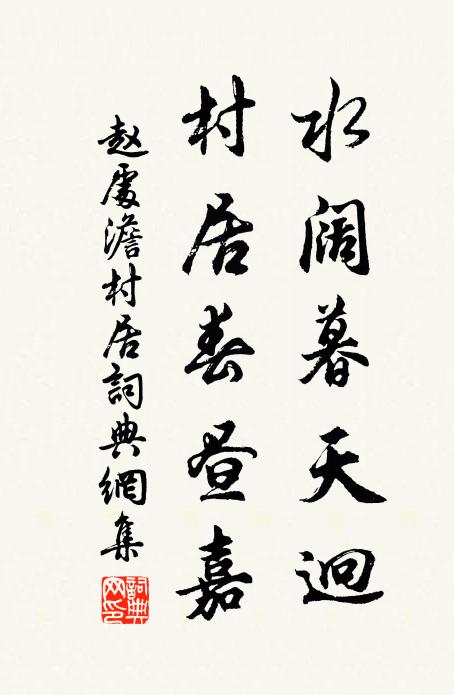 水阔暮天迥
村居春昼嘉
赵處澹村居詞典網集
詞典网印